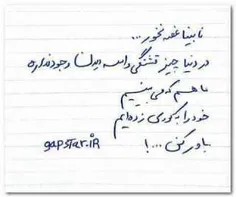 نابینا غصه نخور...
در دنیا چیز قشنگی واسه دیدن وجود نداره
ما هم که می بینیم
خود را به کوری زده ایم
باور کن ...!
gapstar.iR